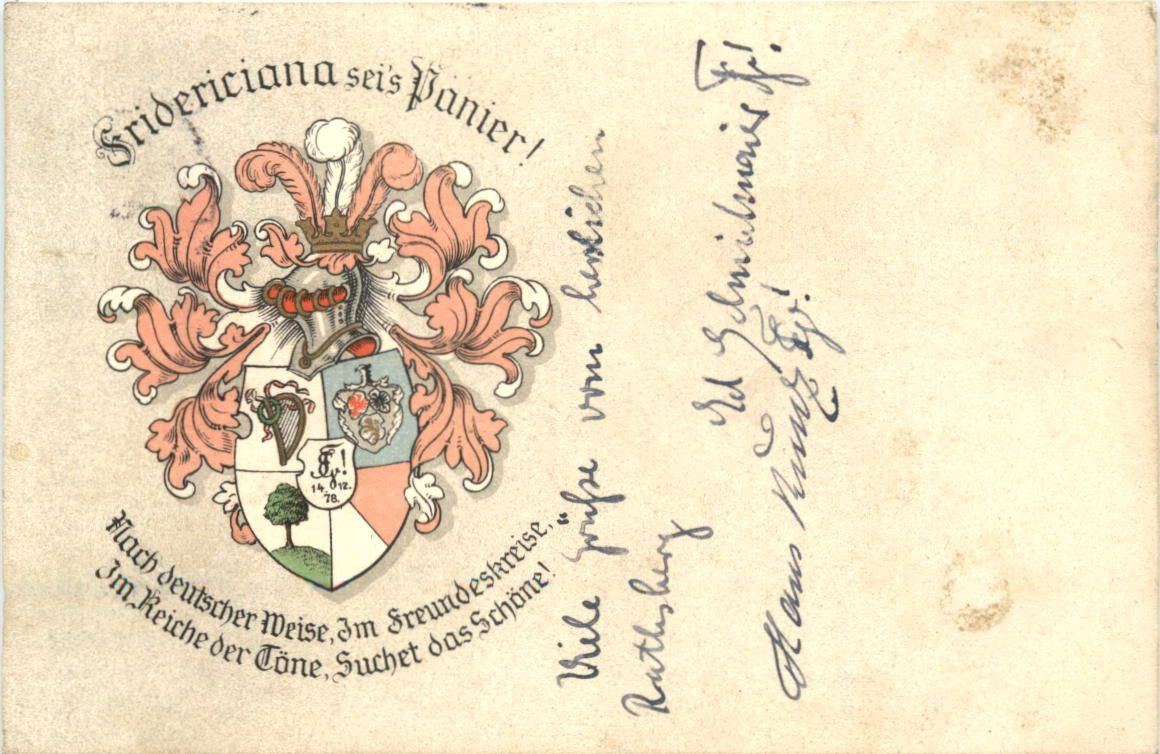 Fridericiana sei's Panier!
Fr!
14. 12.
78.
Nach deutscher Weise, Im Freundeskreise,
Im Reiche der Töne, Suchet das Schöne!
Viele Grüße vom herrlichen
Rathsberg
Hans Kunz Fr!